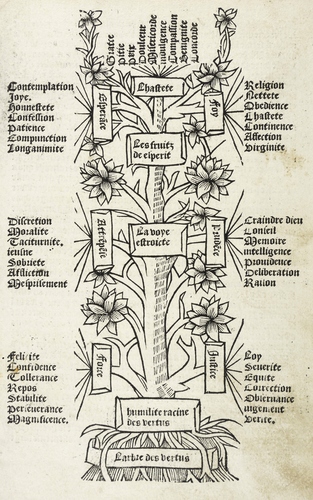 Grace
Pitie
Paix
Doulceur
Misericorde
indulgence
Compassion
Benignite
Concorde
Chastete
Contemplation
Joye.
Honnestete
Confession
Patience
Compunction
Longanimite
Foy
Religion
Nettete
Obedience
Chastete
Continence
Affection
Virginite
Les fruitz
de esperit
Discretion
Moralite
Taciturnite.
ieusne
Sobriete
Affliction
Mesprisement
La voye
estroicte
Craindre dieu
Conseil
Memoire
intelligence
Providence
Deliberation
Raison
Felicite
Confidence
Tollerance
Repos
Stabilite
Perseverance
Magnificence.
Force
Justice
Loy
Severite
Equite
Correction
Observance
iugement
Verite.
humilite racine
des vertus
Larbre des vertus